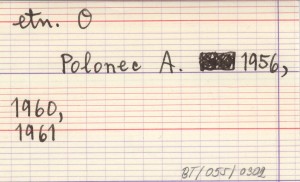 etn. O
Polonec A. 1956,
1960,
1961
BT/055/0302